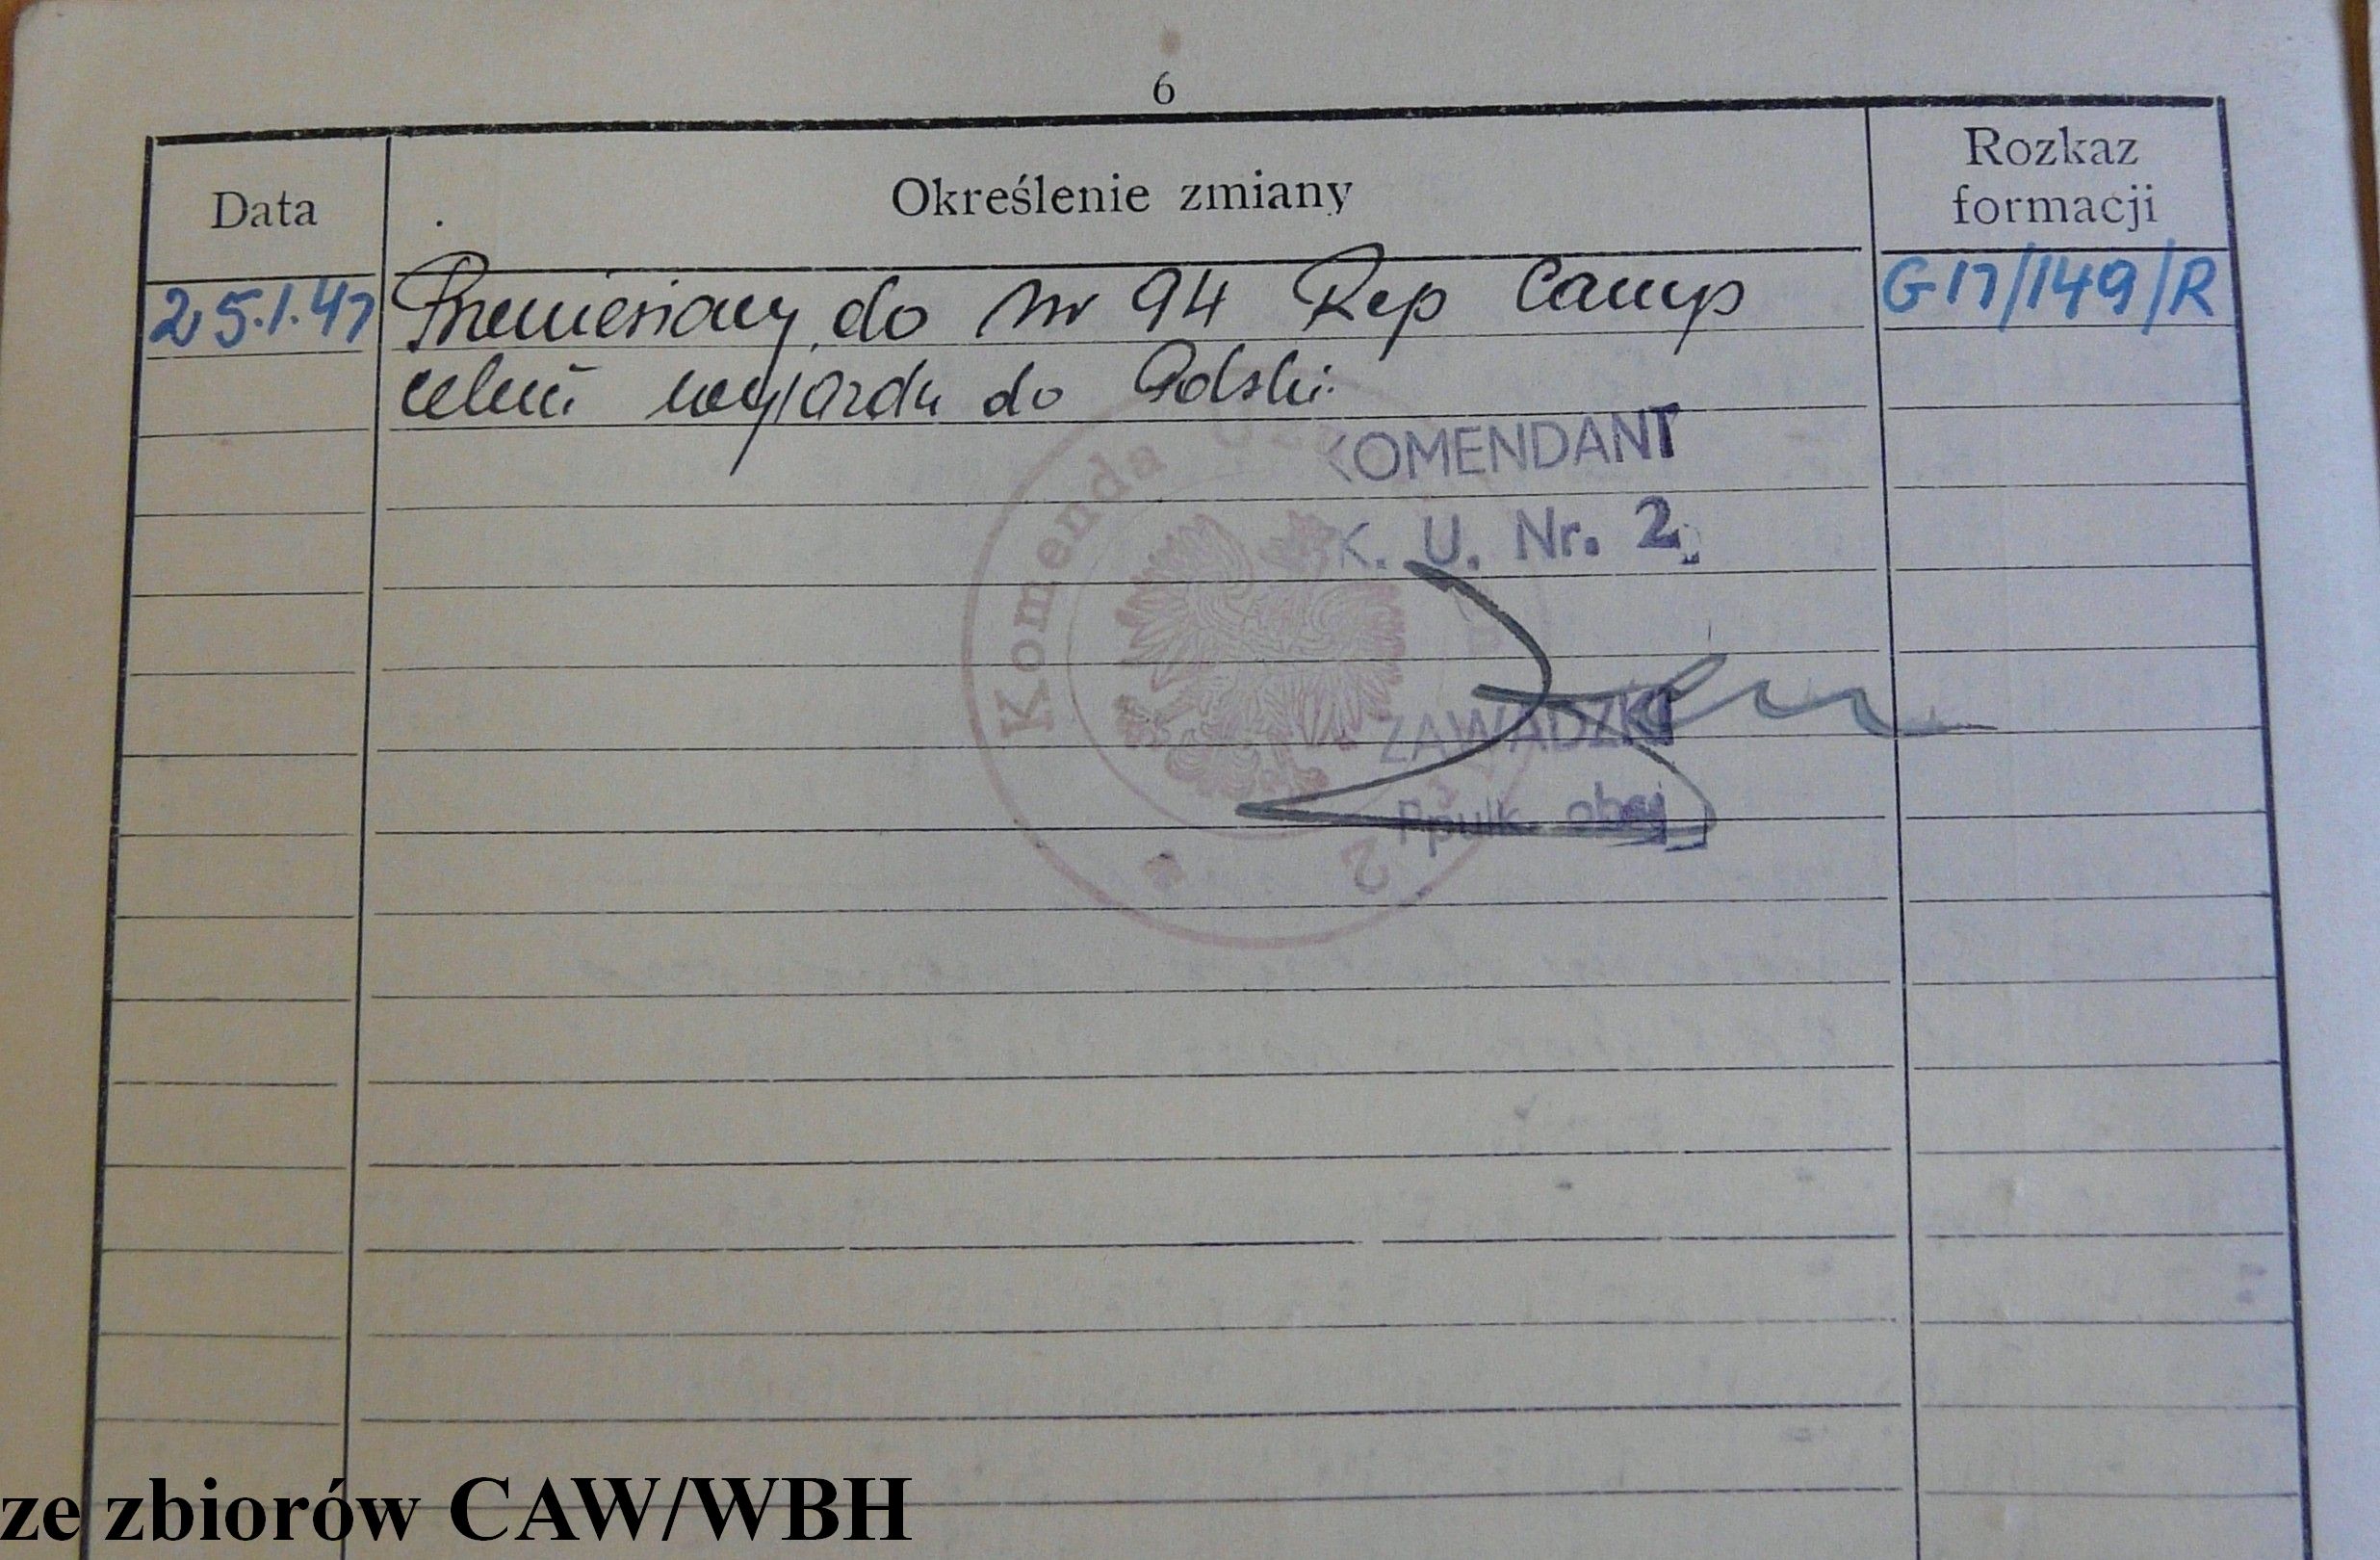 6
Data
Określenie zmiany
Rozkaz
formacji
25.1.47
Przeniesiony do Nr 94 Rep Camp
G17/149/R
celem wyjazdu do Polski.
KOMENDANT
K. U. Nr. 2.
Komenda
2
ZAWADZKI
Ppułk.
ze zbiorów CAW/WBH